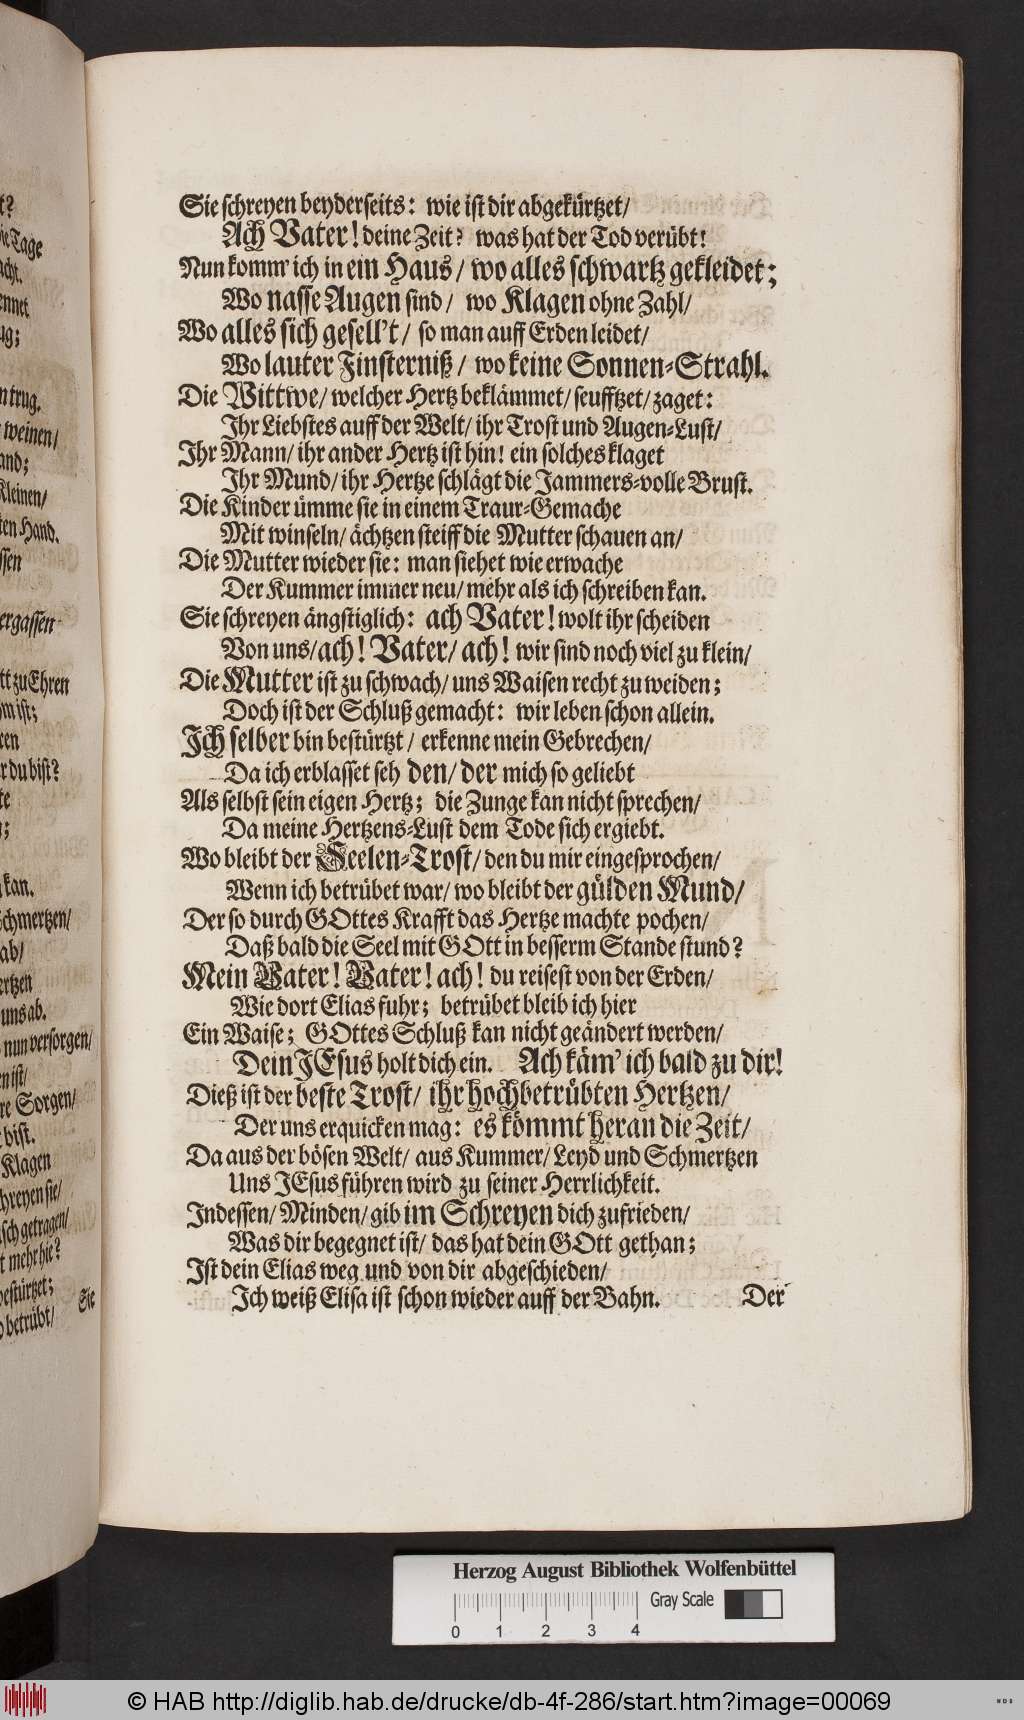 Sie schreyen beyderseits: wie ist dir abgekürtzet/
Ach Vater! deine Zeit? was hat der Tod verübt!
Nun komm' ich in ein Haus/ wo alles schwartz gekleidet;
Wo nasse Augen sind/ wo Klagen ohne Zahl/
Wo alles sich gesell't/ so man auff Erden leidet/
Wo lauter Finsterniß/ wo keine Sonnen-Strahl.
Die Wittwe/ welcher Hertz beklämmet/ seufftzet/ zaget:
Ihr Liebstes auff der Welt/ ihr Trost und Augen-Lust/
Ihr Mann/ ihr ander Hertz ist hin! ein solches klaget
Ihr Mund/ ihr Hertze schlägt die Jammers-volle Brust.
Die Kinder ümme sie in einem Traur-Gemache
Mit winseln/ ächtzen steiff die Mutter schauen an/
Die Mutter wieder sie: man siehet wie erwache
Der Kummer immer neu/ mehr als ich schreiben kan.
Sie schreyen ängstiglich: ach Vater! wolt ihr scheiden
Von uns/ ach! Vater/ ach! wir sind noch viel zu klein/
Die Mutter ist zu schwach/ uns Waisen recht zu weiden;
Doch ist der Schluß gemacht: wir leben schon allein.
Ich selber bin bestürtzt/ erkenne mein Gebrechen/
Da ich erblasset seh den/ der mich so geliebt
Als selbst sein eigen Hertz; die Zunge kan nicht sprechen/
Da meine Hertzens-Lust dem Tode sich ergiebt.
Wo bleibt der Seelen-Trost/ den du mir eingesprochen/
Wenn ich betrübet war/ wo bleibt der gülden Mund/
Der so durch GOttes Krafft das Hertze machte pochen/
Daß bald die Seel mit GOtt in besserm Stande stund?
Mein Vater! Vater! ach! du reisest von der Erden/
Wie dort Elias fuhr; betrübet bleib ich hier
Ein Waise; GOttes Schluß kan nicht geändert werden/
Dein JEsus holt dich ein. Ach käm' ich bald zu dir!
Dieß ist der beste Trost/ ihr hochbetrübten Hertzen/
Der uns erquicken mag: es kömmt heran die Zeit/
Da aus der bösen Welt/ aus Kummer/ Leyd und Schmertzen
Uns JEsus führen wird zu seiner Herrlichkeit.
Indessen/ Minden/ gib im Schreyen dich zufrieden/
Was dir begegnet ist/ das hat dein GOtt gethan;
Ist dein Elias weg und von dir abgeschieden/
Ich weiß Elisa ist schon wieder auff der Bahn.
Der
t?
ie Tage
acht.
ennet
ug;
n trug.
weinen/
and;
Kleinen/
ten Hand.
ssen
ergassen
tt zu Ehren
hm ist;
ren
r du bist?
te
n;
kan.
Schmertzen/
ab/
ertzen
uns ab.
nun versorgen/
en ist/
re Sorgen/
bist.
Klagen
chreyen sie/
sch getragen/
t mehr hie?
bestürtzet;
o betrübt/
Sie
Herzog August Bibliothek Wolfenbüttel
Gray Scale
0 1 2 3 4
© HAB http://diglib.hab.de/drucke/db-4f-286/start.htm?image=00069
WDB